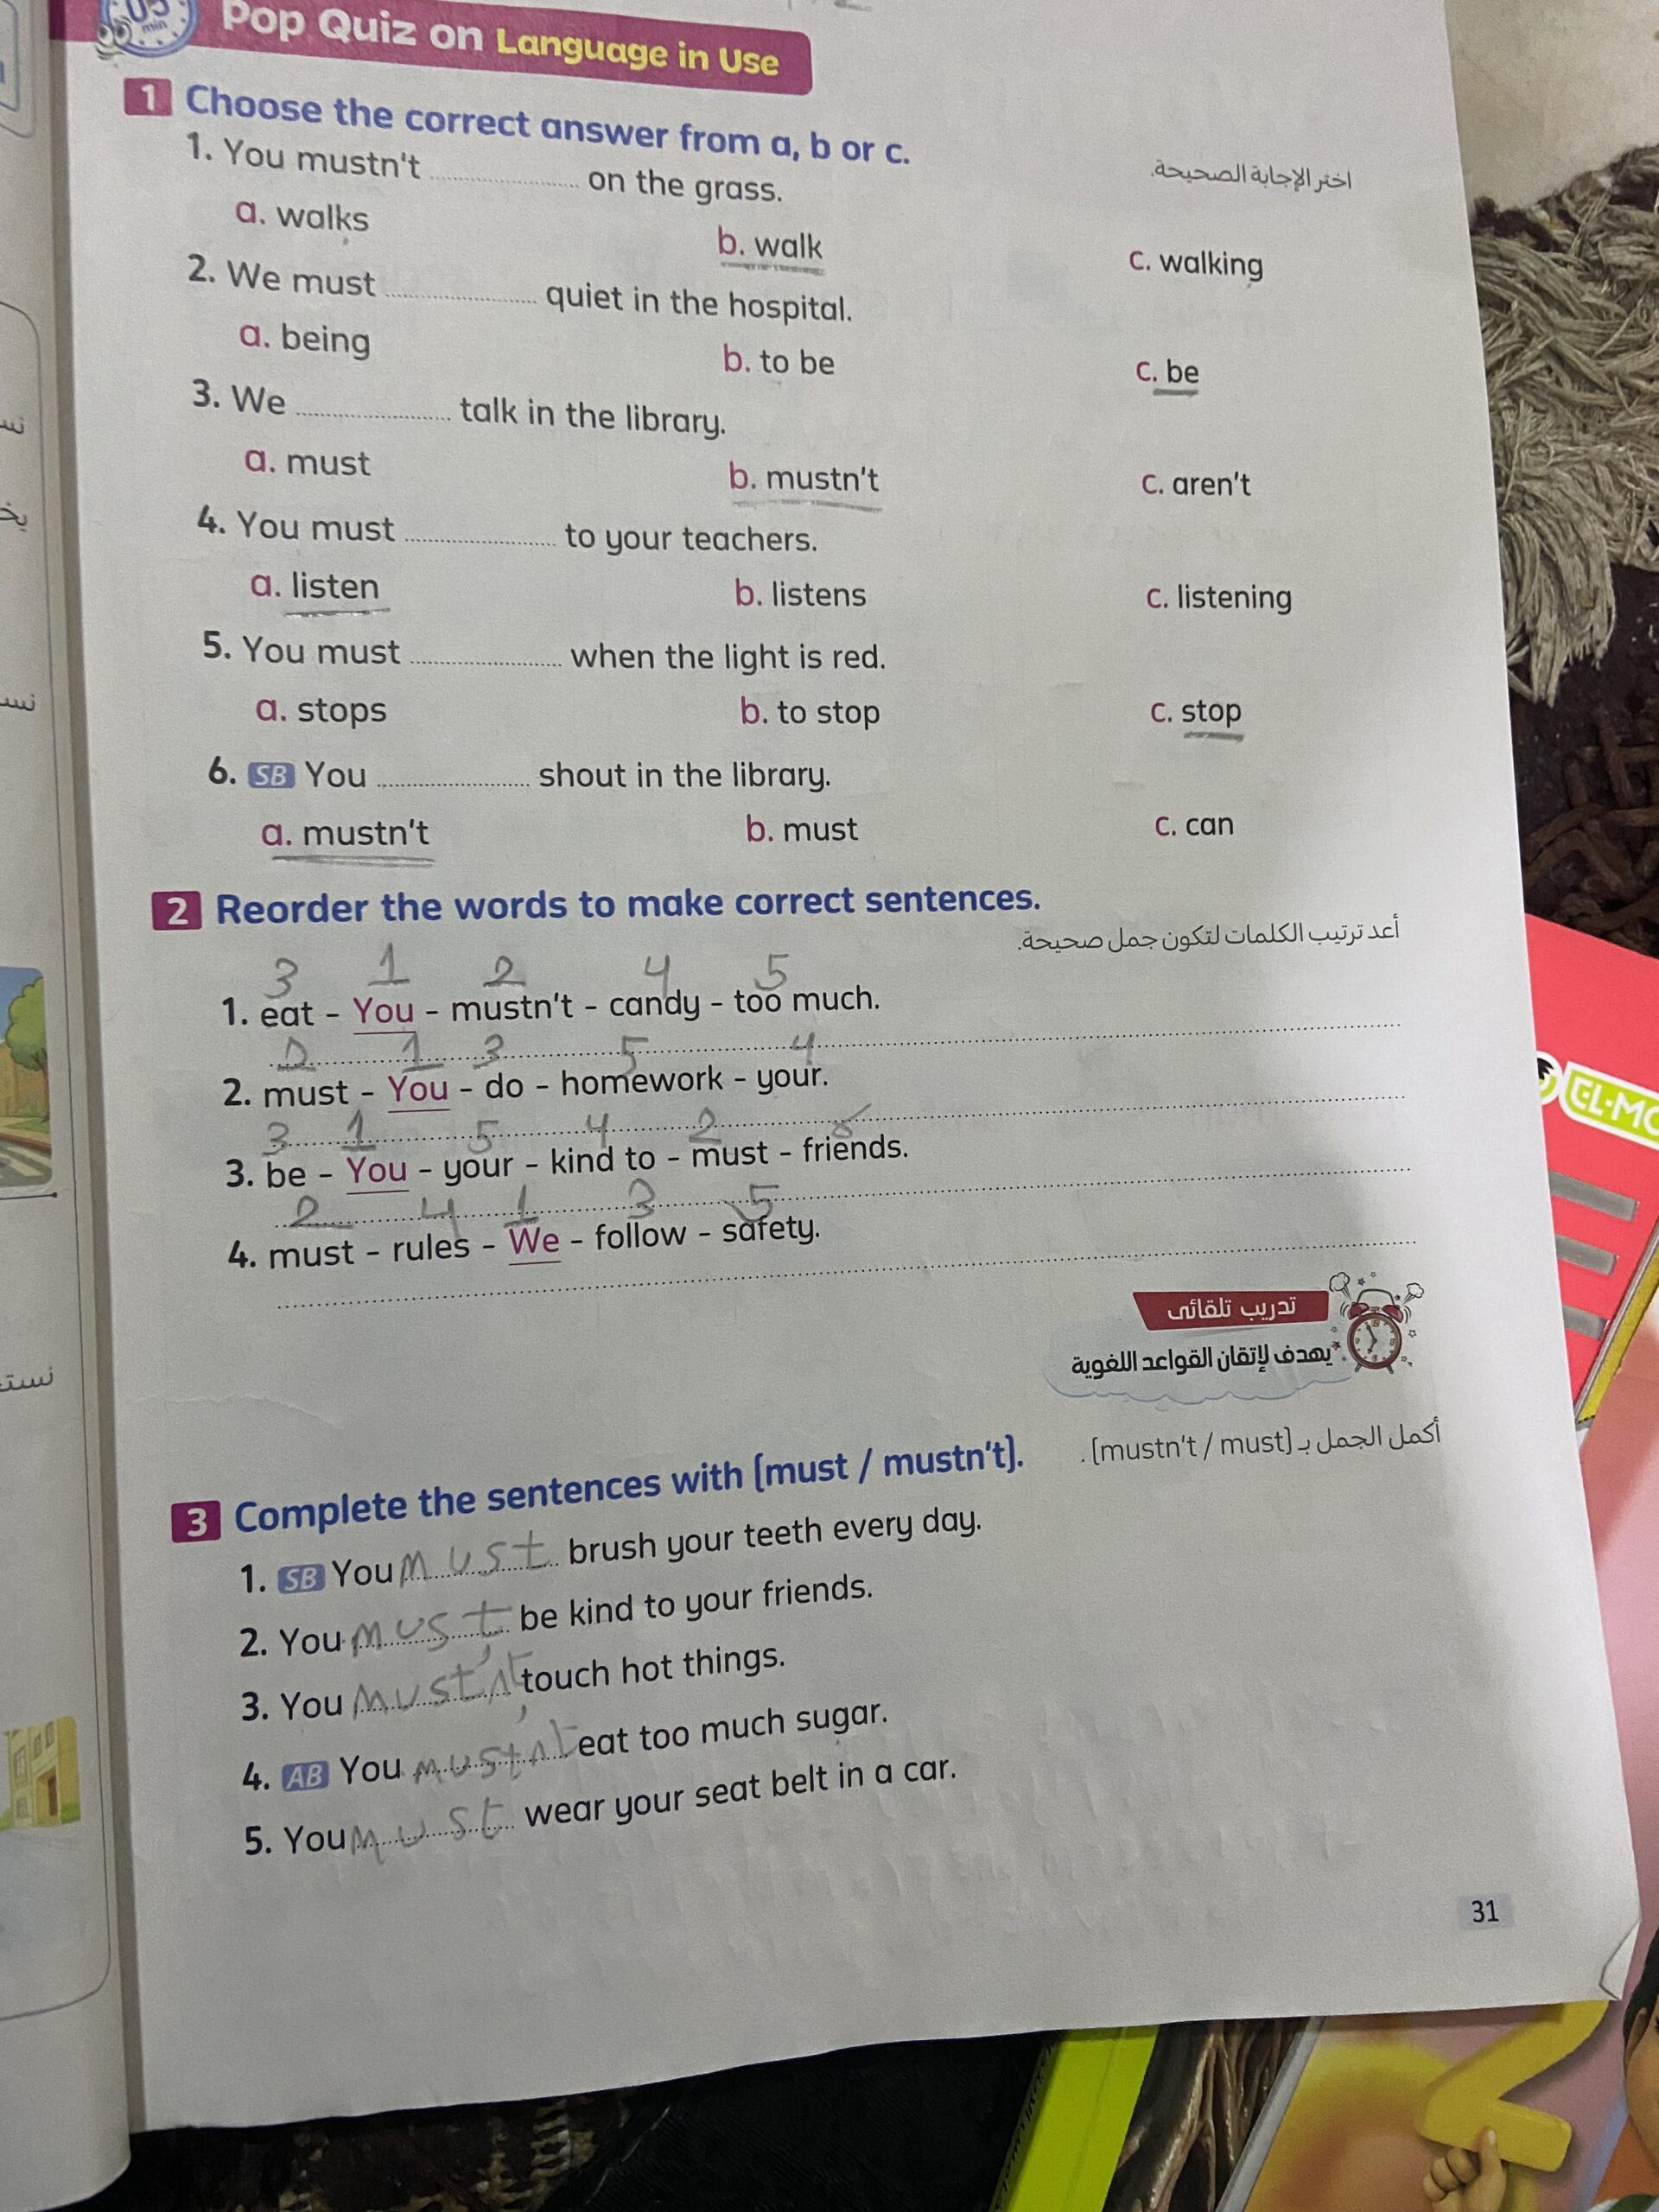 05
min
Pop Quiz on Language in Use
1 Choose the correct answer from a, b or c.
اختر الإجابة الصحيحة.
1. You mustn't ........ on the grass.
a. walks b. walk c. walking
2. We must ........ quiet in the hospital.
a. being b. to be c. be
3. We ........ talk in the library.
a. must b. mustn't c. aren't
4. You must ........ to your teachers.
a. listen b. listens c. listening
5. You must ........ when the light is red.
a. stops b. to stop c. stop
6. SB You ........ shout in the library.
a. mustn't b. must c. can
2 Reorder the words to make correct sentences.
أعد ترتيب الكلمات لتكون جمل صحيحة.
3 1 2 4 5
1. eat - You - mustn't - candy - too much.
2 1 3 5 4
2. must - You - do - homework - your.
3 1 5 4 2 6
3. be - You - your - kind to - must - friends.
2 4 1 3 5
4. must - rules - We - follow - safety.
تدريب تلقائى
يهدف لإتقان القواعد اللغوية
3 Complete the sentences with (must / mustn't).
أكمل الجمل بـ (mustn't / must).
1. SB You must brush your teeth every day.
2. You must be kind to your friends.
3. You must'nt touch hot things.
4. AB You must'nt eat too much sugar.
5. You must wear your seat belt in a car.
31
EL-MO